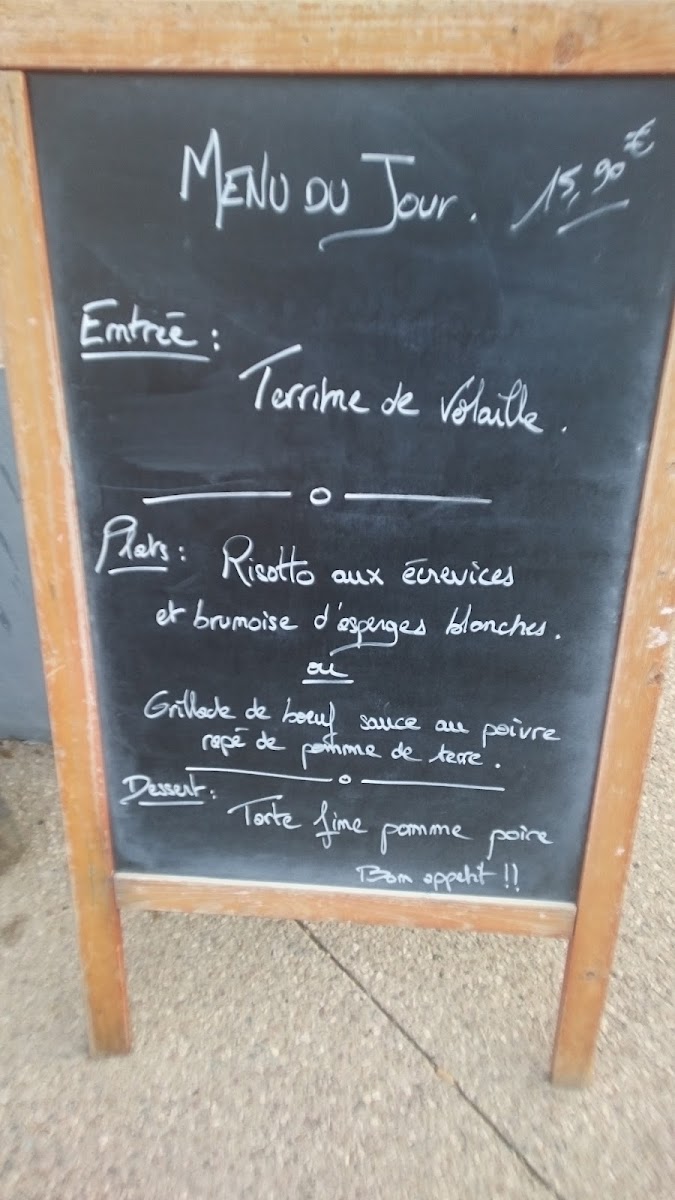 MENU DU JOUR. 15,90€
Entrée :
Terrine de Volaille.
Plats : Risotto aux écrevices
et brunoise d'asperges blanches.
ou
Grillade de boeuf sauce au poivre
rapé de pomme de terre.
Dessert : Tarte fine pomme poire
Bon appetit !!